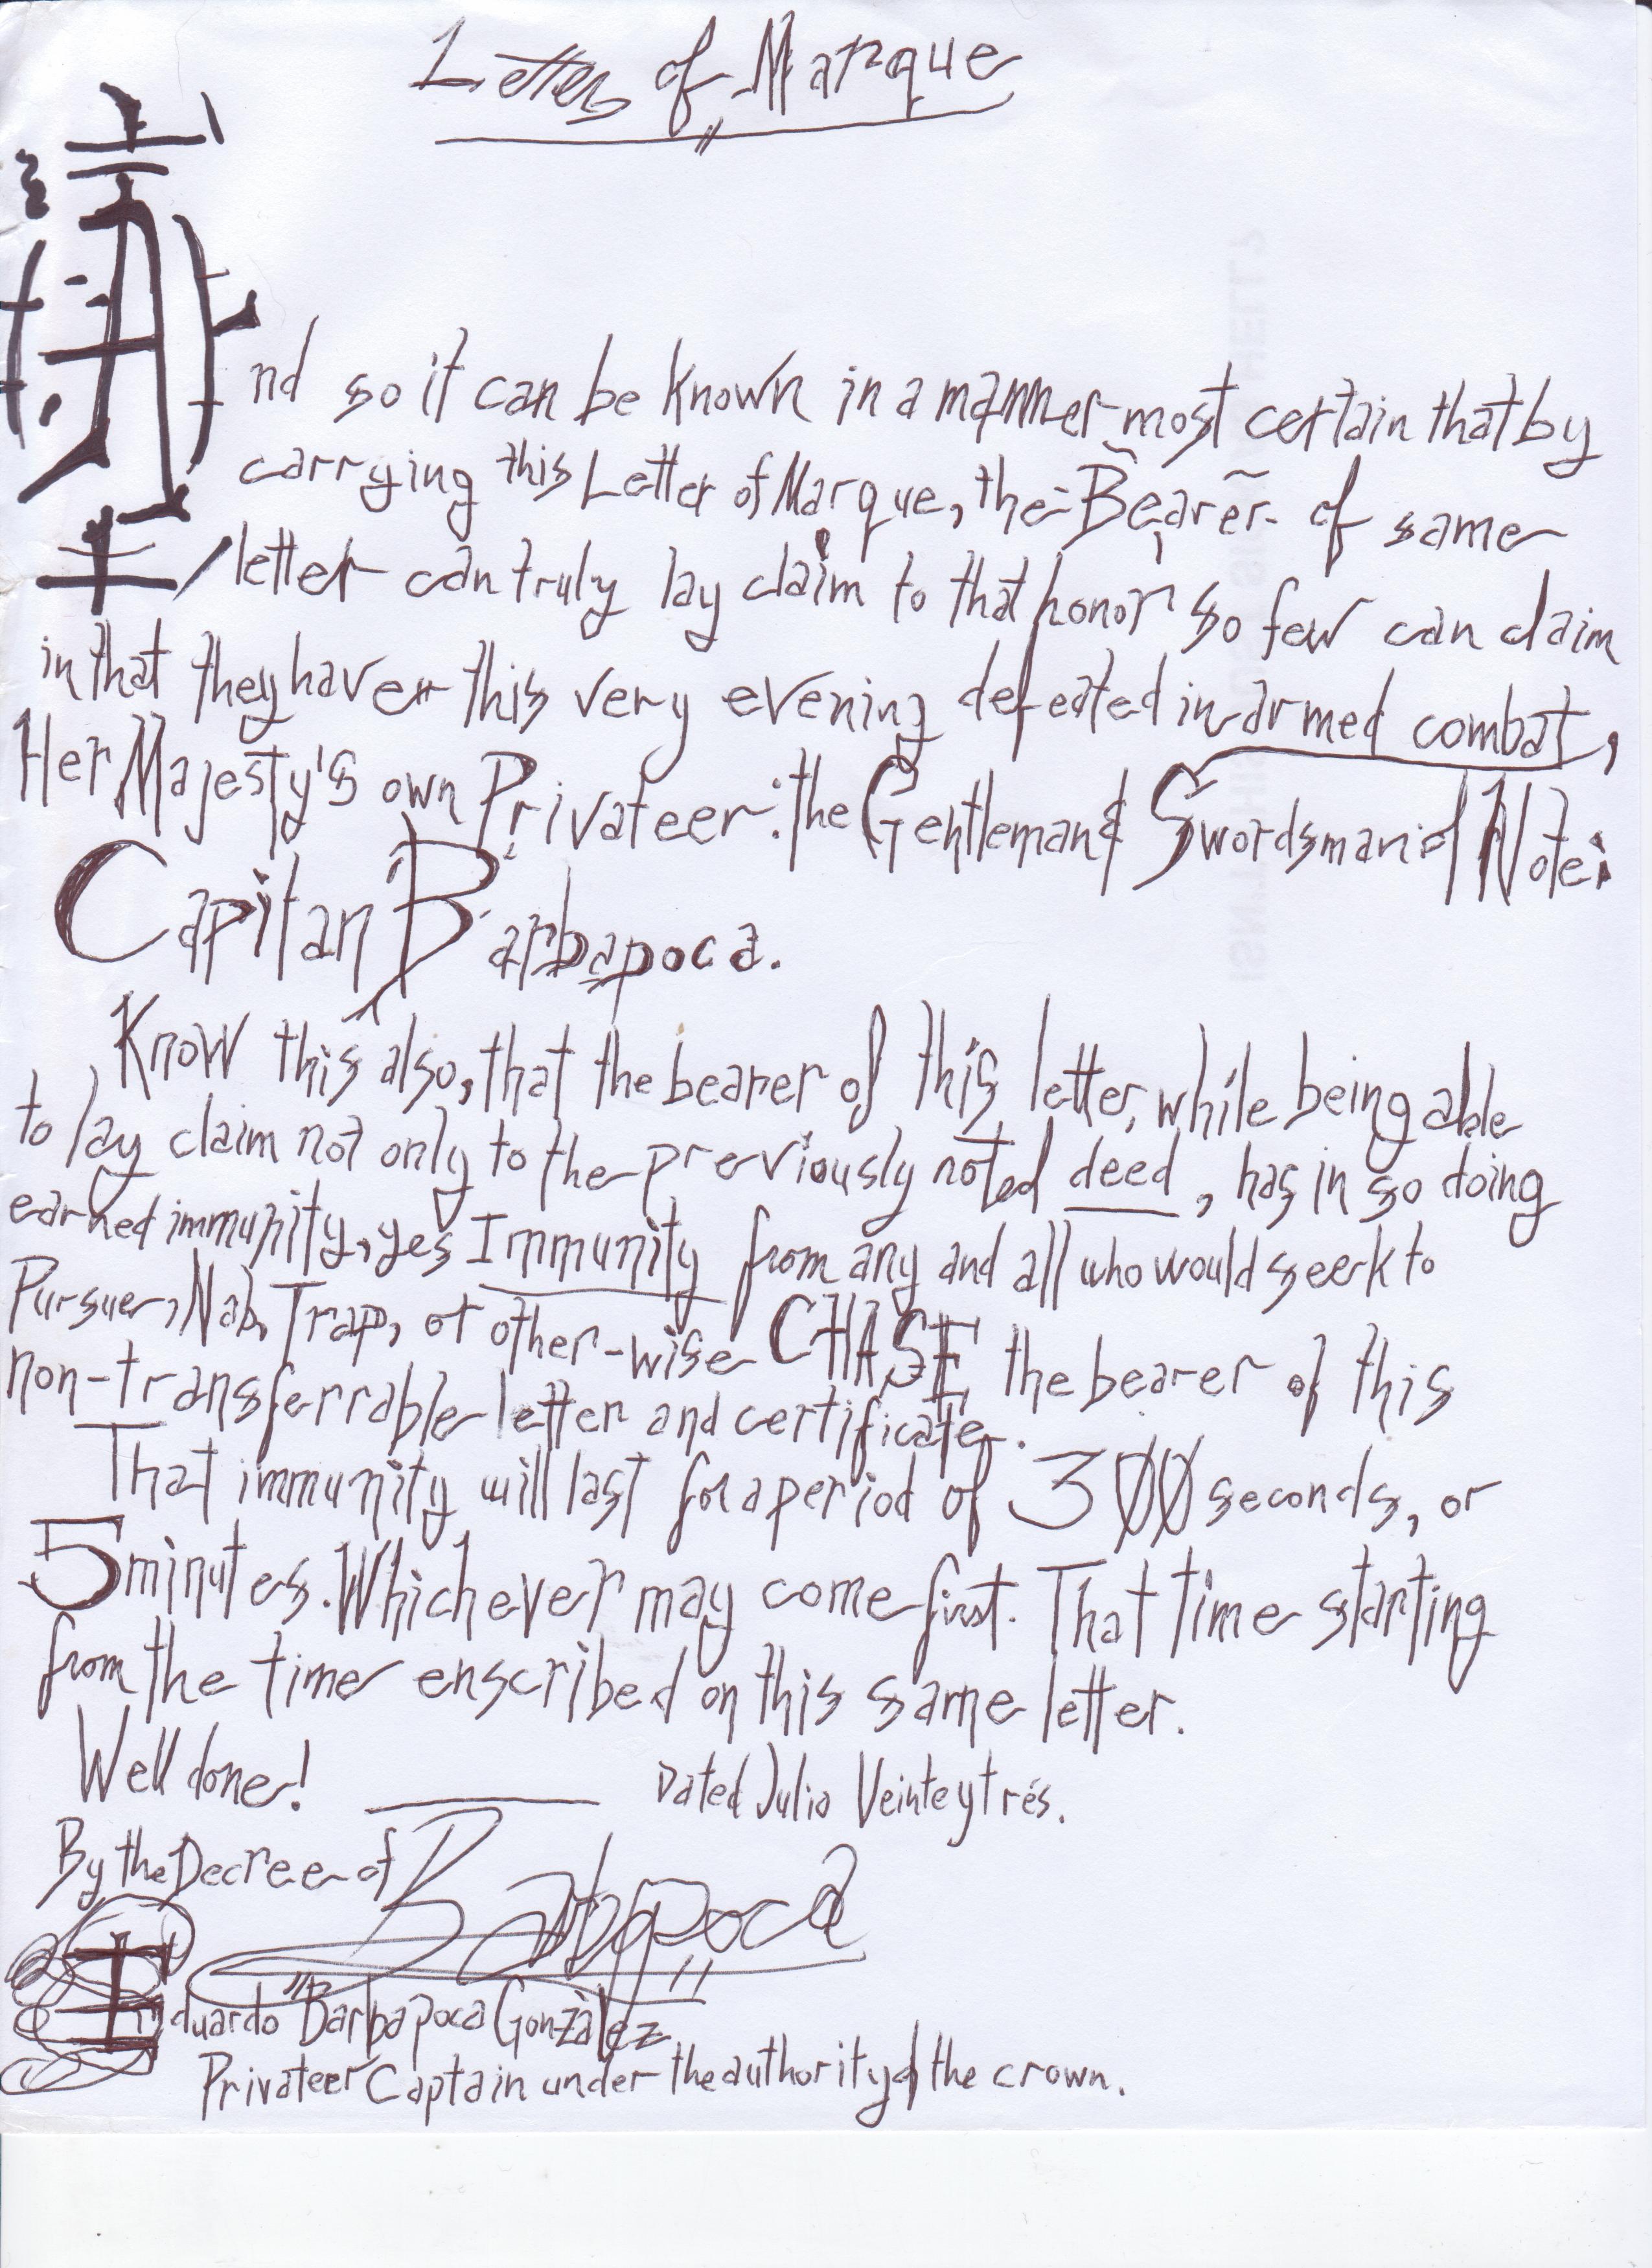 Letter of Marque
And so it can be known in a manner most certain that by
carrying this Letter of Marque, the Bearer of same
letter can truly lay claim to that honor so few can claim
in that they have this very evening defeated in armed combat,
Her Majesty's own Privateer: the Gentleman & Swordsman of Note:
Capitan Barbapoca.
Know this also, that the bearer of this letter, while being able
to lay claim not only to the previously noted deed, has in so doing
earned immunity, yes Immunity from any and all who would seek to
Pursue, Nab, Trap, or other-wise CHASE the bearer of this
non-transferrable letter and certificate.
That immunity will last for a period of 300 seconds, or
5 minutes. Whichever may come first. That time starting
from the time enscribed on this same letter.
Well done! Dated Julio Veinte y trés.
By the Decree of Barbapoca
Eduardo "Barbapoca" Gonzàlez
Privateer Captain under the authority of the crown.